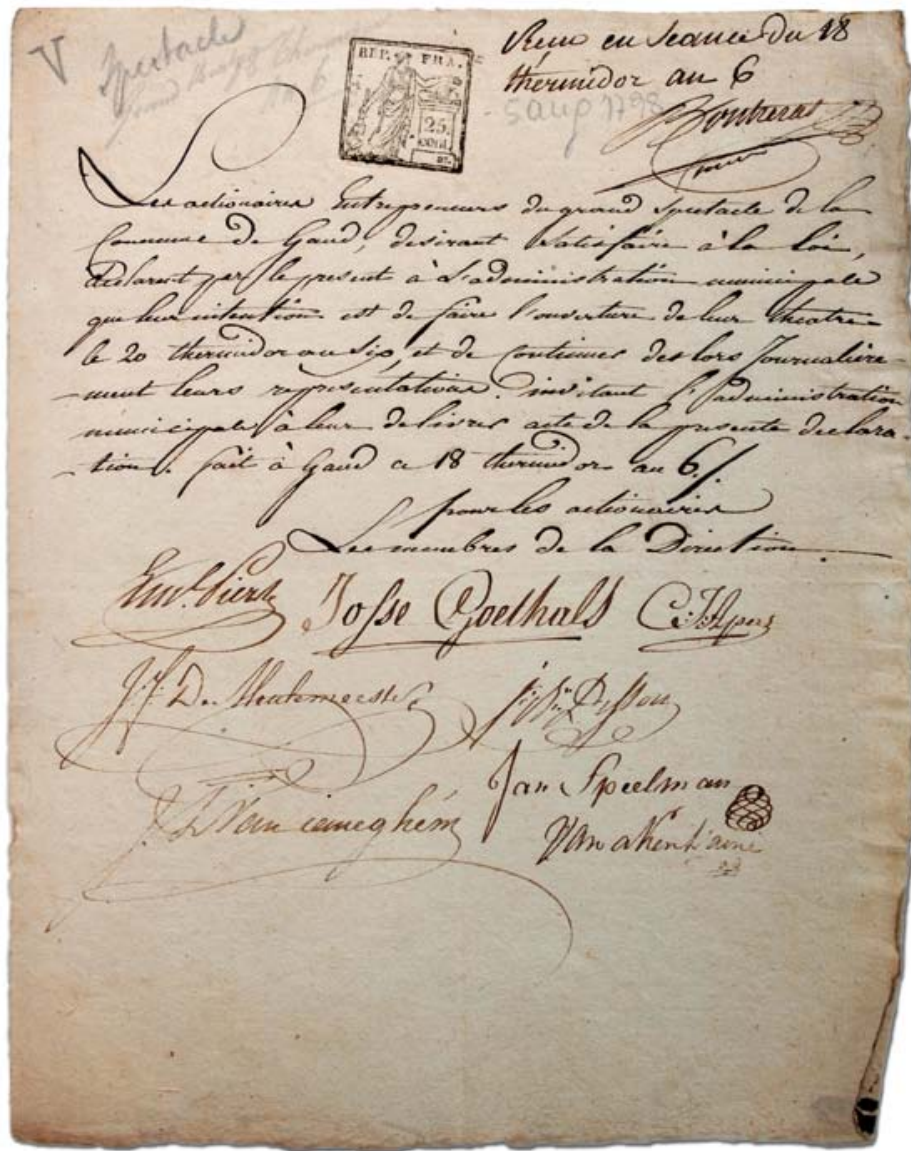 V Spectacle
an 6
REP. FRA.
25.
CENT.
Reçu en seance du 18
thermidor an 6
5 aug 1798
Les actionaires Entrepreneurs du grand Spectacle de la
Commune de Gand, desirant satisfaire à la loi,
declarent par le present à L'administration municipale
que leur intention est de faire l'ouverture de leur theatre
le 20 thermidor an Six, et de Continuer des lors Journaliere-
-ment leurs representations. invitant l'administration
municipale à leur delivrer acte de la presente declara-
-tion. fait à Gand ce 18 thermidor an 6./
pour les actionaires
Les membres de la Direction
Josse Goethals
J. De Meulemeester
Jan Speelman
Van aken l'ainé